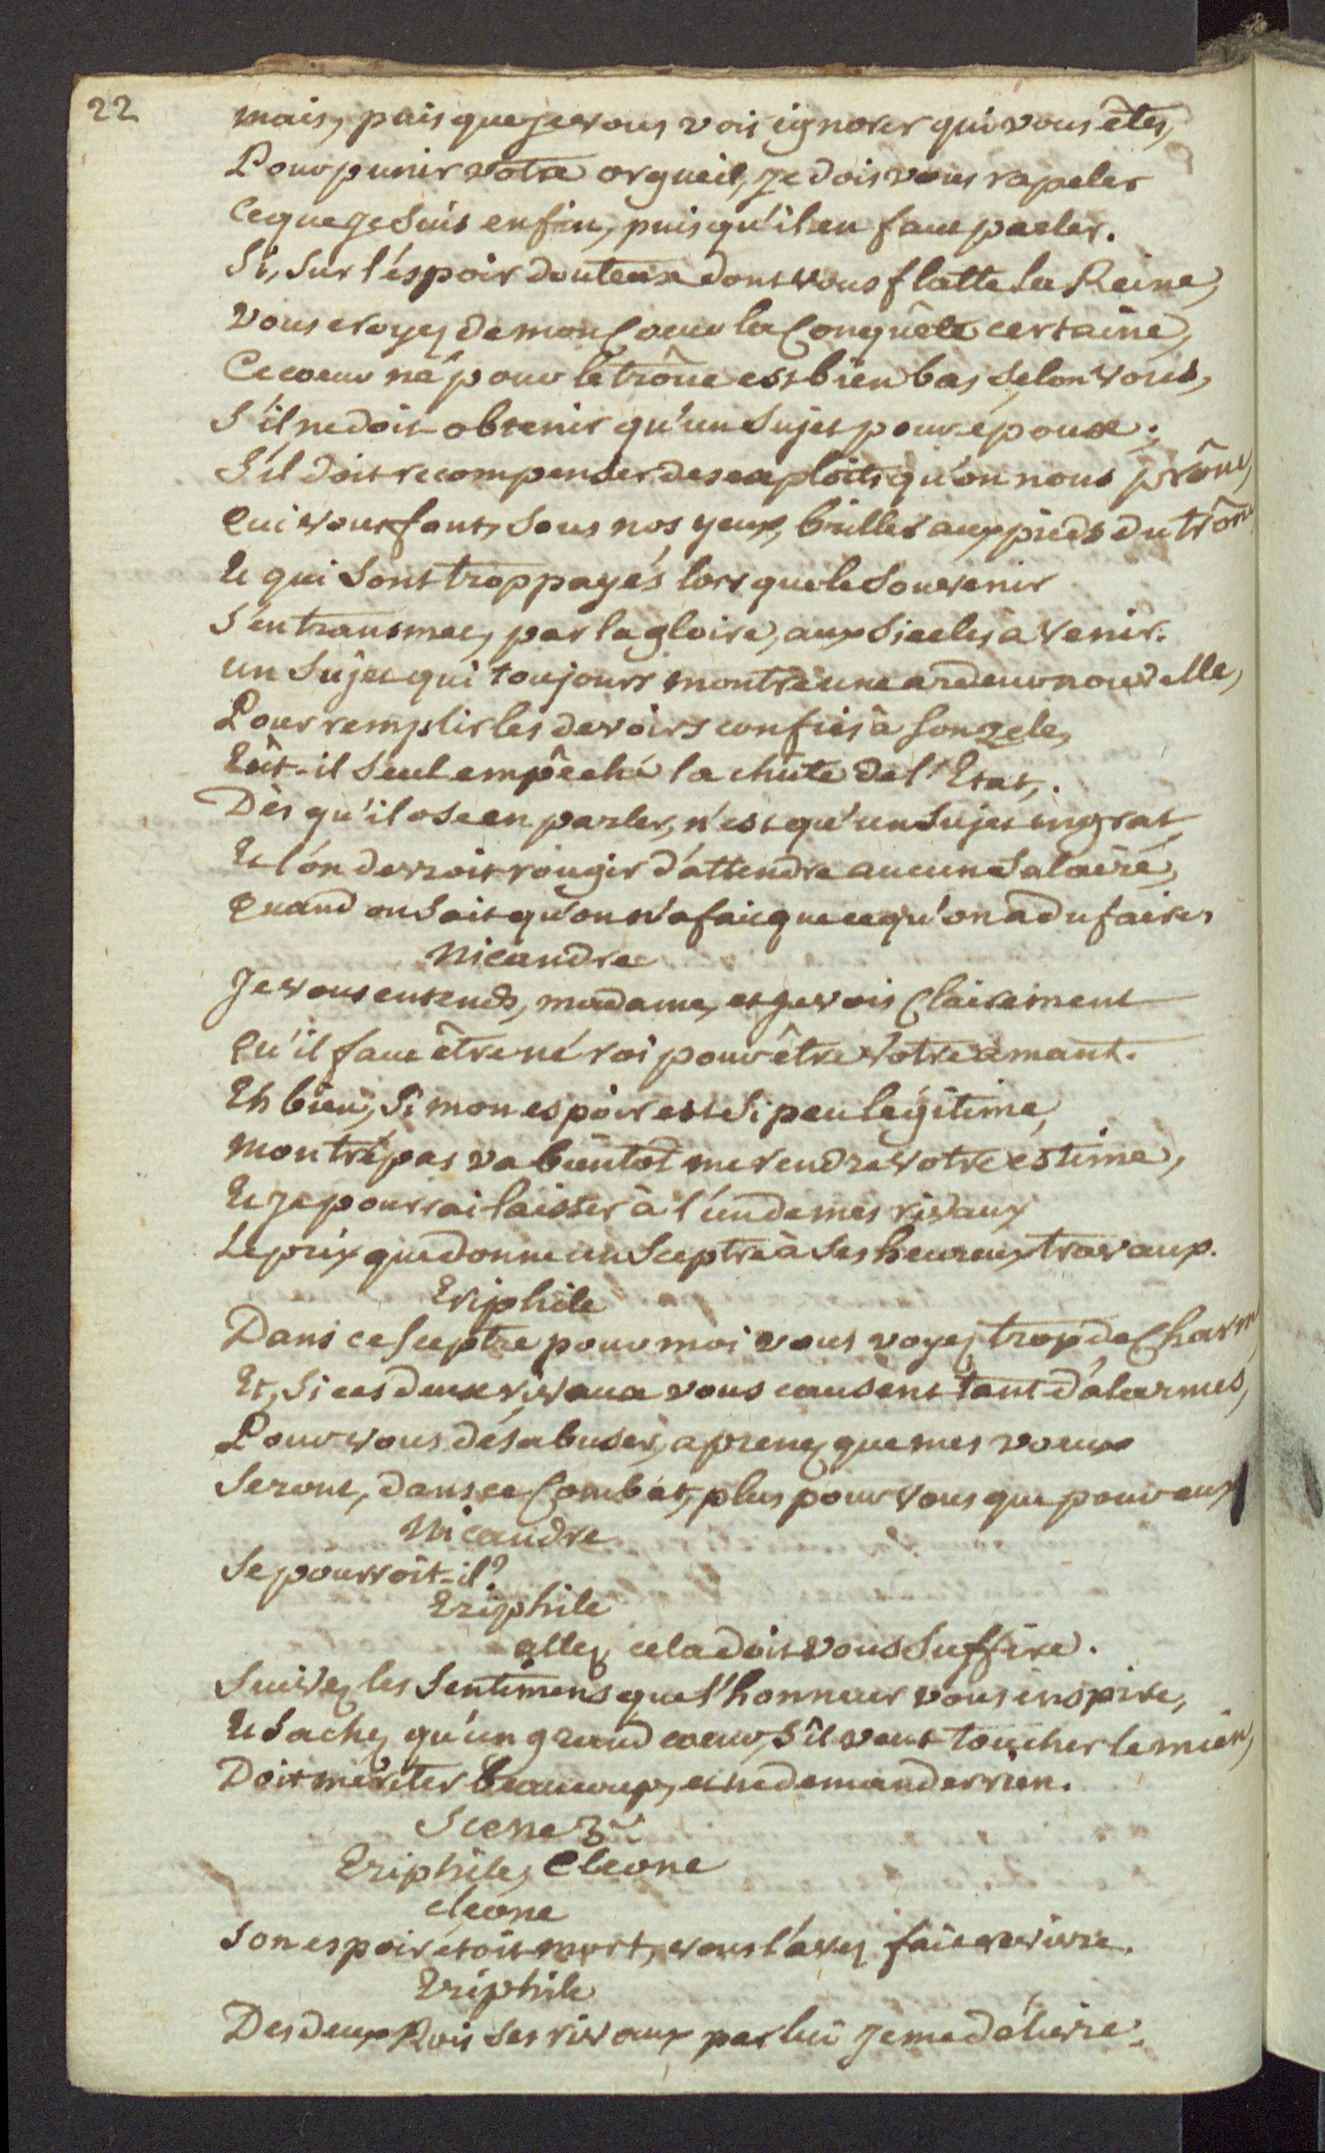 22
mais, puis que je vous vois ignorer qui vous êtes,
Pour punir votre orgueil, je dois vous rapeler
Ce que je suis enfin, puis qu'il en faut parler.
Si, sur l'éspoir douteux dont vous flatte la Reine,
Vous croyez de mon Coeur la Conquête certaine,
Ce coeur né pour le trône est bien bas selon vous,
S'il ne doit obtenir qu'un sujet pour époux;
S'il doit recompenser des exploits qu'on nous prône,
Qui vous font, sous nos yeux, briller aux pieds du trône
Et qui sont trop payés lors que le souvenir
S'en transmet, par la gloire, aux siecles à venir.
un sujet qui toujours montre une ardeur nouvelle,
Pour remplir les devoirs confiés à son zele,
Eût-il seul empêché la chûte de l'Etat,
Dès qu'il ose en parler, n'est qu'un sujet ingrat,
Et l'on devroit rougir d'attendre aucun salaire,
Quand on sait qu'on n'a fait que ce qu'on a du faire.
Nicandre
Je vous entends, madame, et je vois Clairement
Qu'il faut être né roi pour être votre amant.
Eh bien, si mon espoir est si peu légitime,
mon trépas va bientôt me rendre votre éstime,
Et je pourrai laisser à l'un de mes rivaux
Le prix que donne un Sceptre à ses heureux travaux.
Eriphile
Dans ce sceptre pour moi vous voyez trop de Charm
Et, si ces deux rivaux vous causent tant d'alarmes,
Pour vous désabuser, aprenez que mes voeux
Seront, dans ce Combat, plus pour vous que pour eux
Nicandre
Se pourroit-il?
Eriphile
allez, cela doit vous suffire.
Suivez les sentimens que l'honneur vous inspire,
Et sachez qu'un grand coeur, s'il veut toucher le mien,
Doit mériter beaucoup, et ne demander rien.
Scene 3e
Eriphile, Cleone
cleone
Son espoir étoit mort, vous l'avez fait revivre.
Eriphile
Des deux Rois ses rivaux par lui je me délivre.